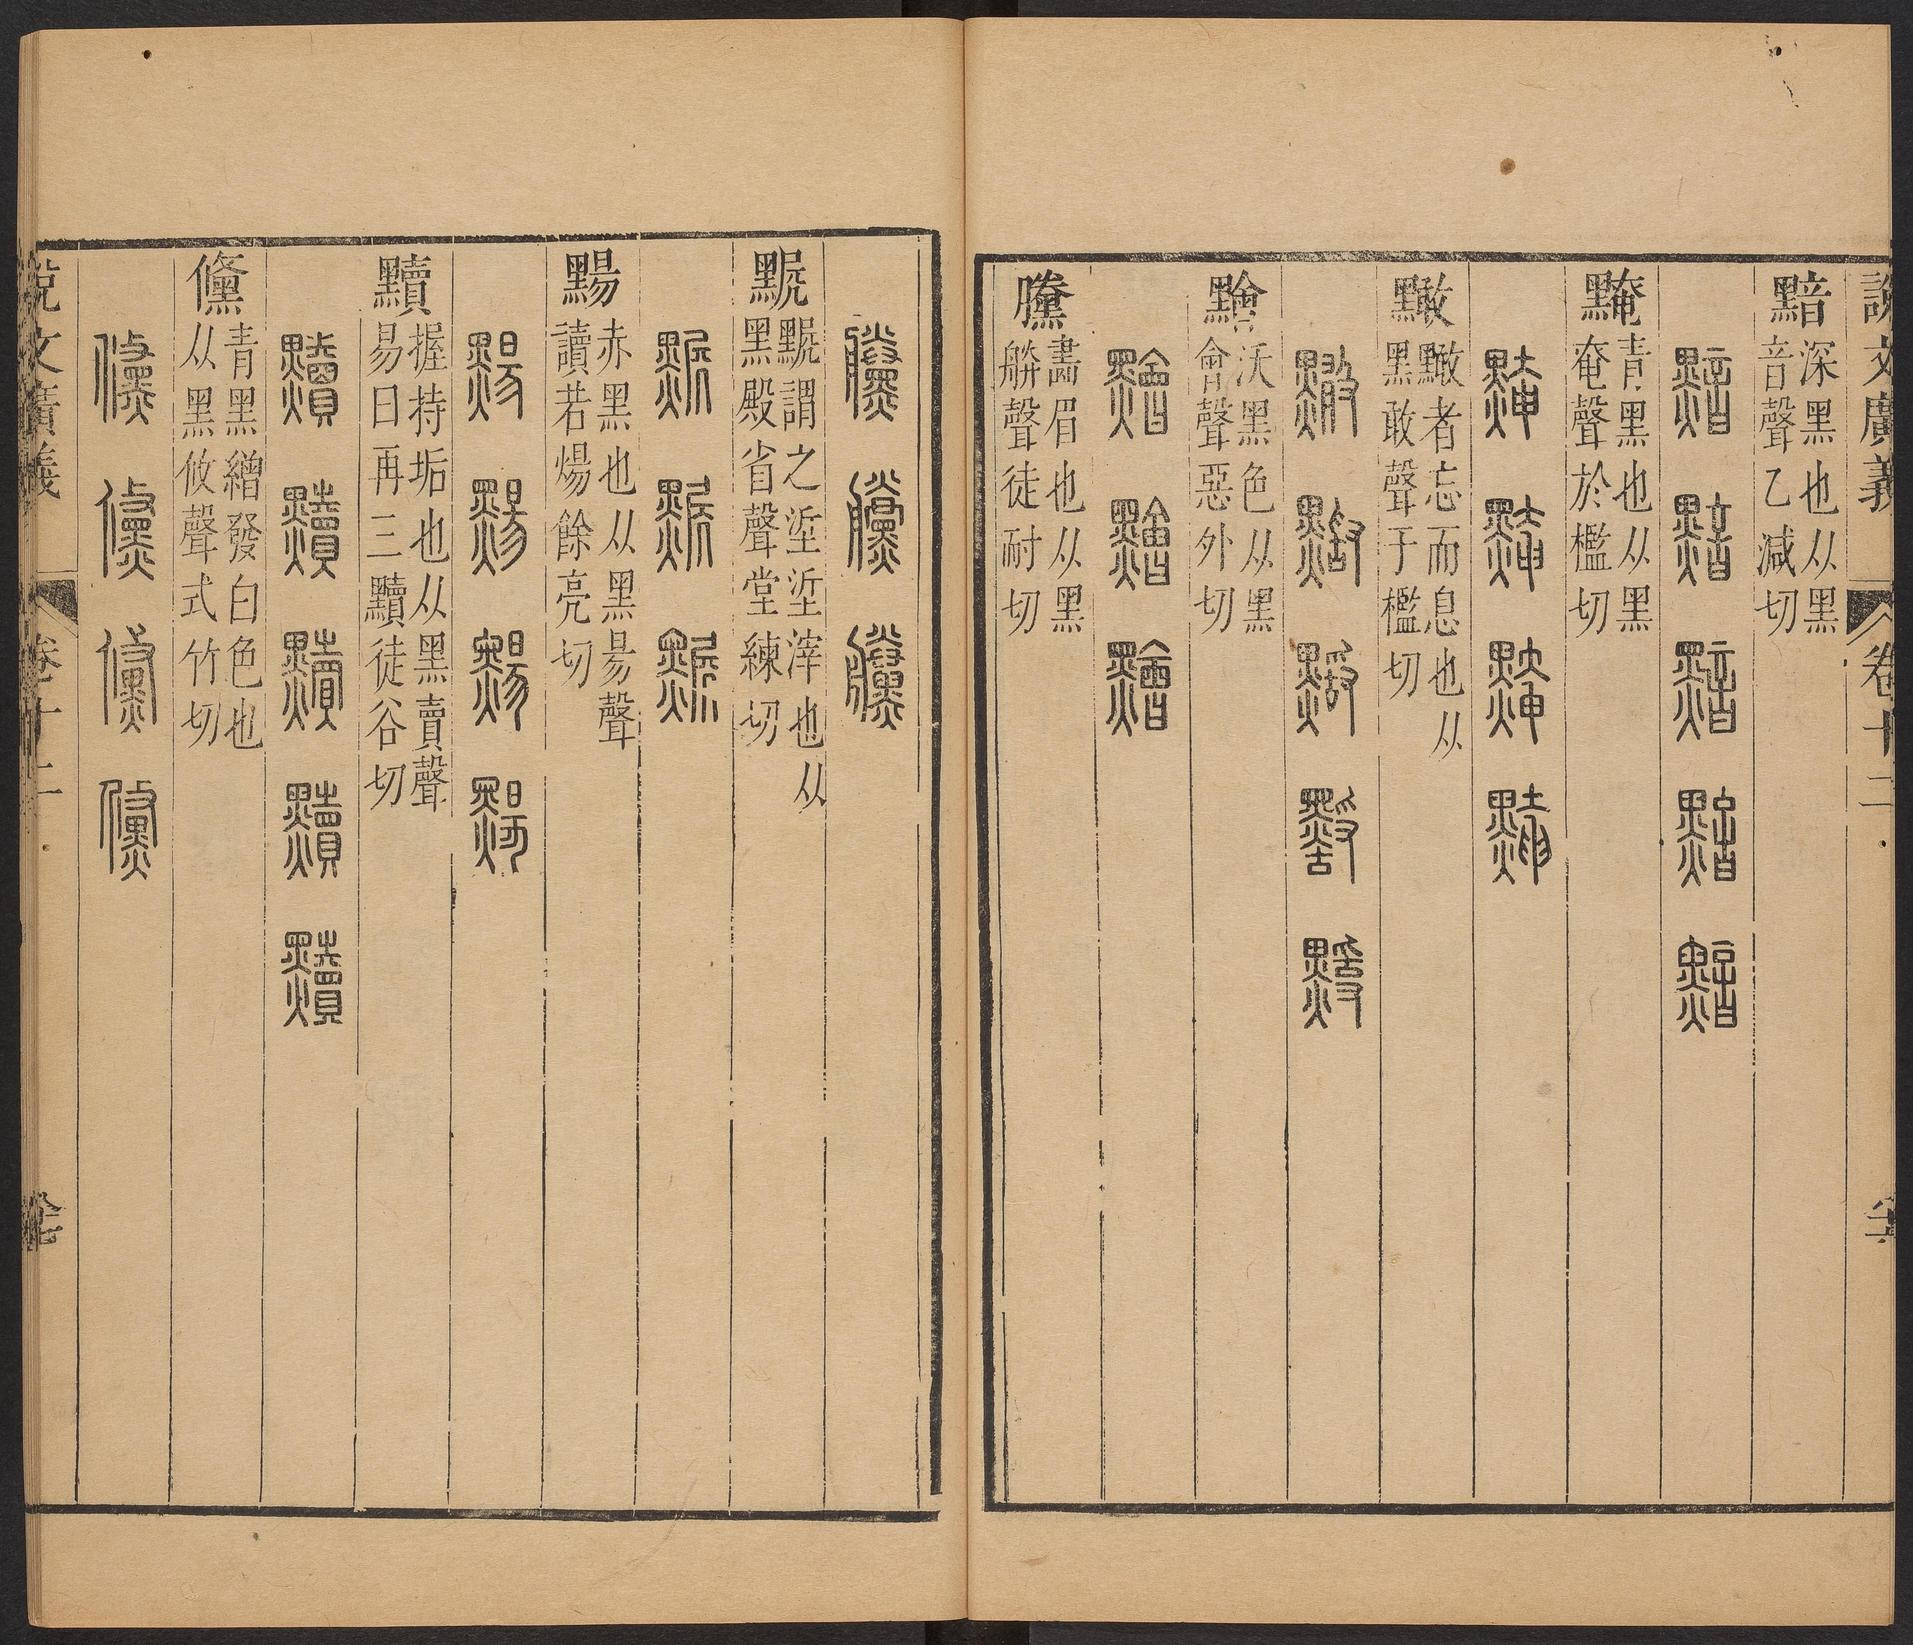 說文廣義
卷十二
黯深黑也从黑
音聲乙減切
黯黯黯黯黯
黤青黑也从黑
奄聲於檻切
黤黤黤黤
黵者忘而息也从
黑敢聲于檻切
黕沃黑色从黑
會聲惡外切
黱畵眉也从黑
朕聲徒耐切
黱黱黱
黗黗謂之垽垽滓也从
黑殿省聲堂練切
赤黑也从黑昜聲
讀若煬餘亮切
黷握持垢也从黑賣聲
易曰再三黷徒谷切
黷黷黷黷黷
儵青黑繒發白色也
从黑攸聲式竹切
儵儵儵儵
說文廣義
卷十二